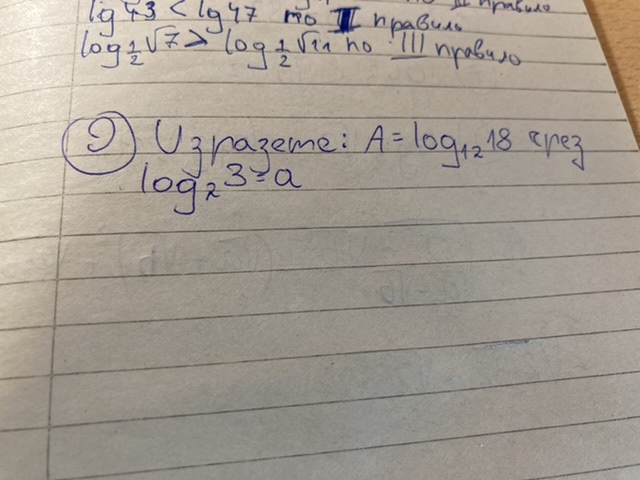 II правило
lg 43 < lg 47 по II правило
log½ √7 > log½ √11 по III правило
9 Изразете: A = log₁₂ 18 чрез
log₂ 3 = a